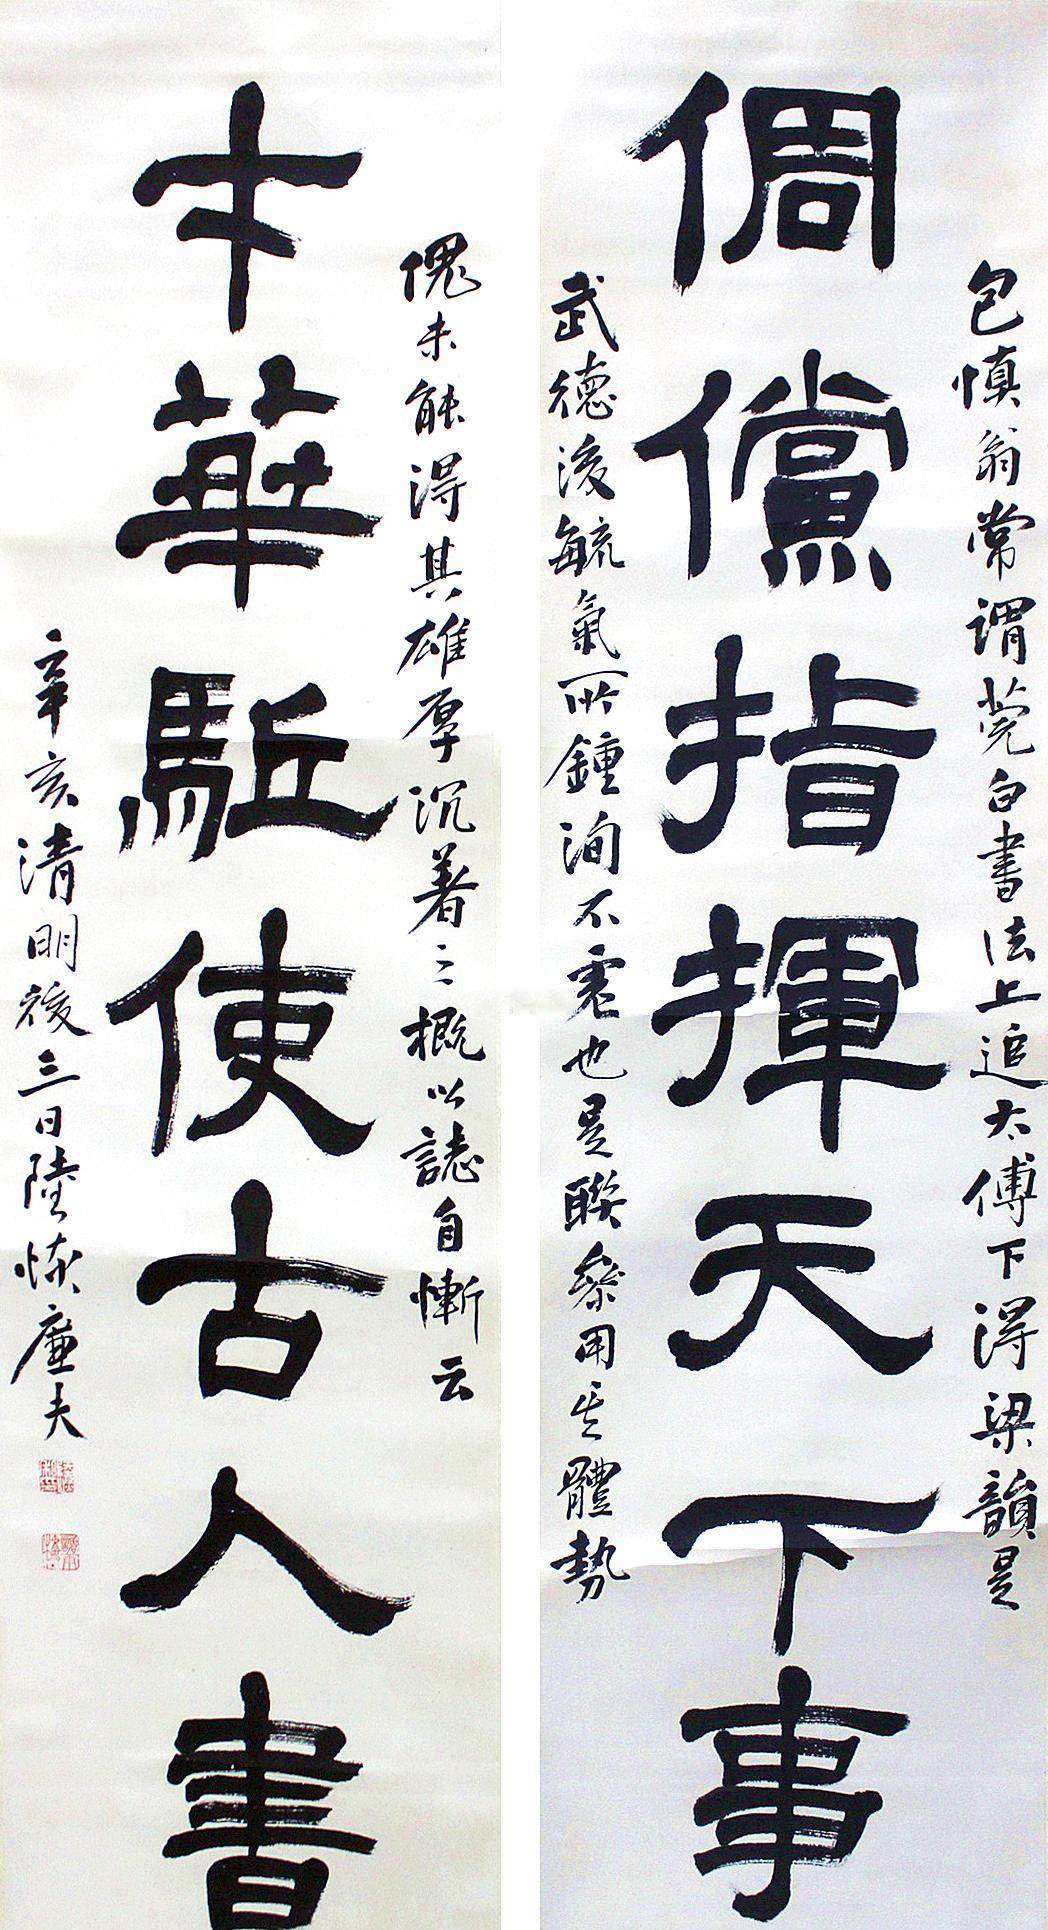 包慎翁常謂莞白書法上追太傅下淂梁韻是
倜儻指揮天下事
武德後毓氣所鍾洵不虛也是聯參用其體勢
愧未能淂其雄厚沉著之概以誌自慚云
才華駈使古人書
辛亥清明後三日陸恢廉夫